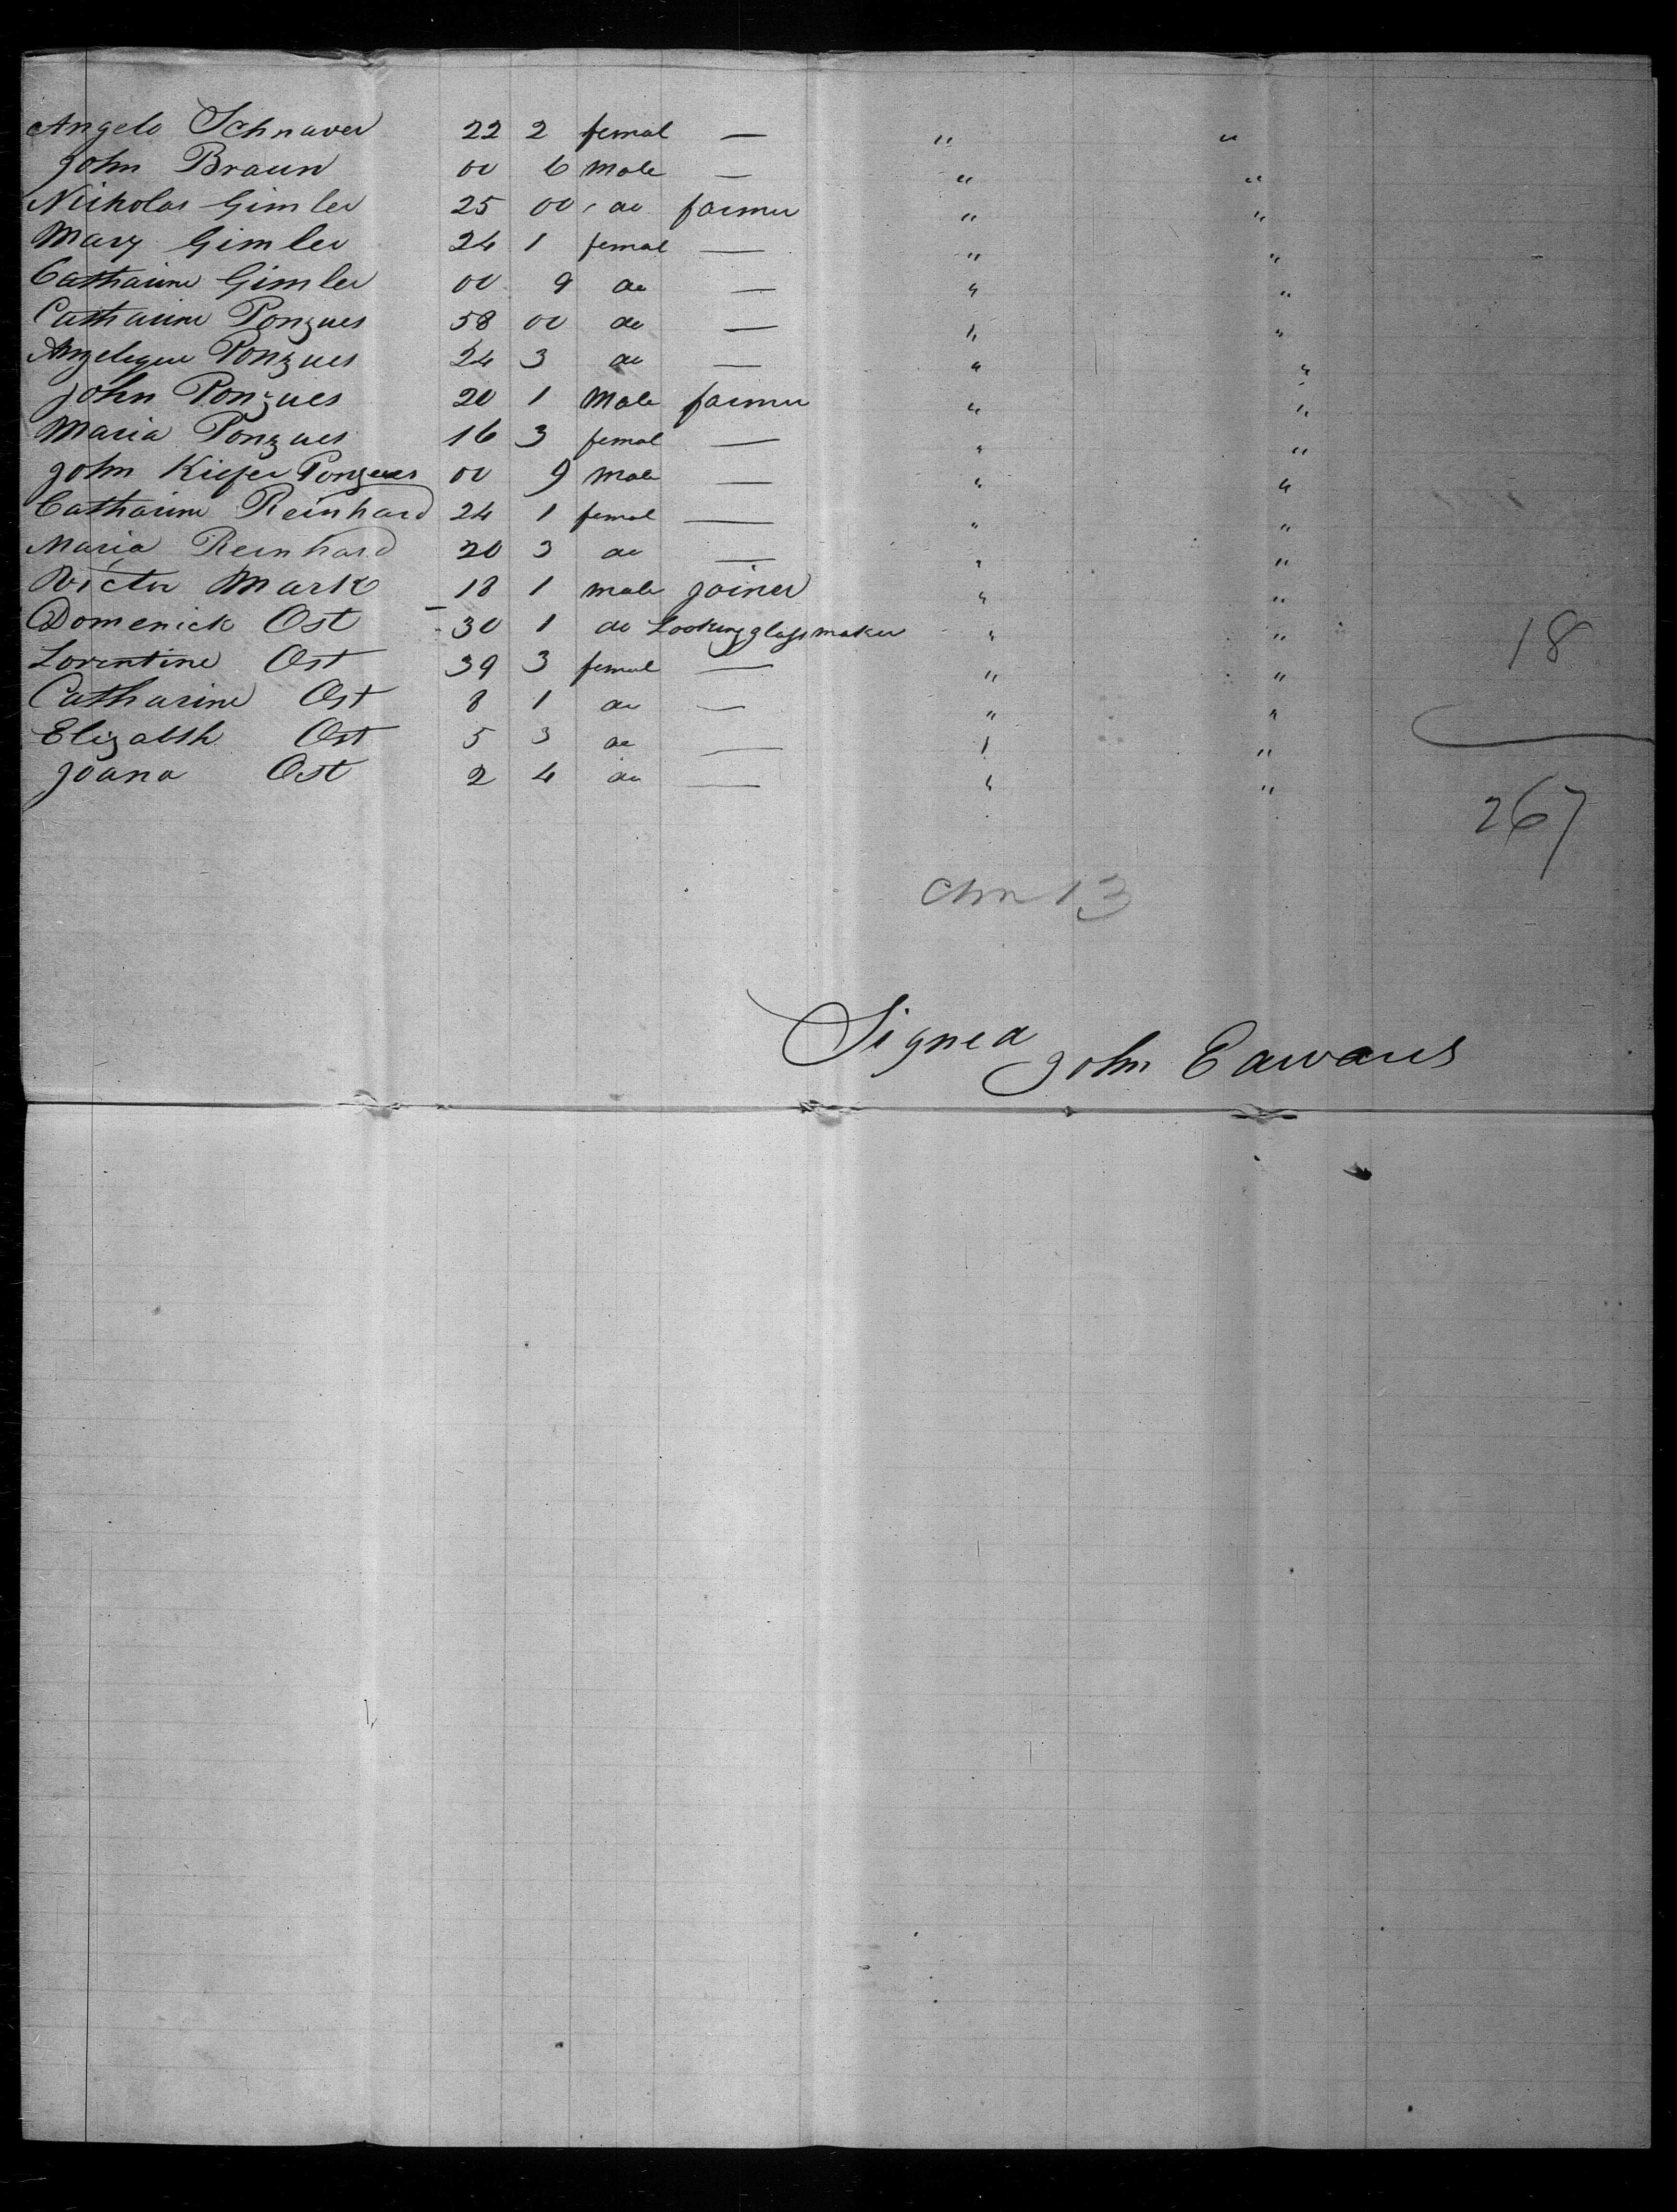 Angelo Schnaver 22 2 femal — " "
John Braun 00 6 Male — " "
Nicholas Gimler 25 00 do farmer " "
Mary Gimler 24 1 femal — " "
Catharine Gimler 00 9 do — " "
Catharine Ponzues 58 00 do — " "
Angelique Ponzues 24 3 do — " "
John Ponzues 20 1 Male farmer " "
Maria Ponzues 16 3 femal — " "
John Kiefer Ponzues 00 9 Male — " "
Catharine Reinhard 24 1 femal — " "
Maria Reinhard 20 3 do — " "
Victor Mark 18 1 male joiner " "
Domenick Ost 30 1 do Looking glass maker " "
Lorentine Ost 39 3 femal — " "
Catharine Ost 8 1 do — " "
Elizabth Ost 5 3 do — " "
Joana Ost 2 4 do — " "
18
267
Chn 13
Signed John Edwards